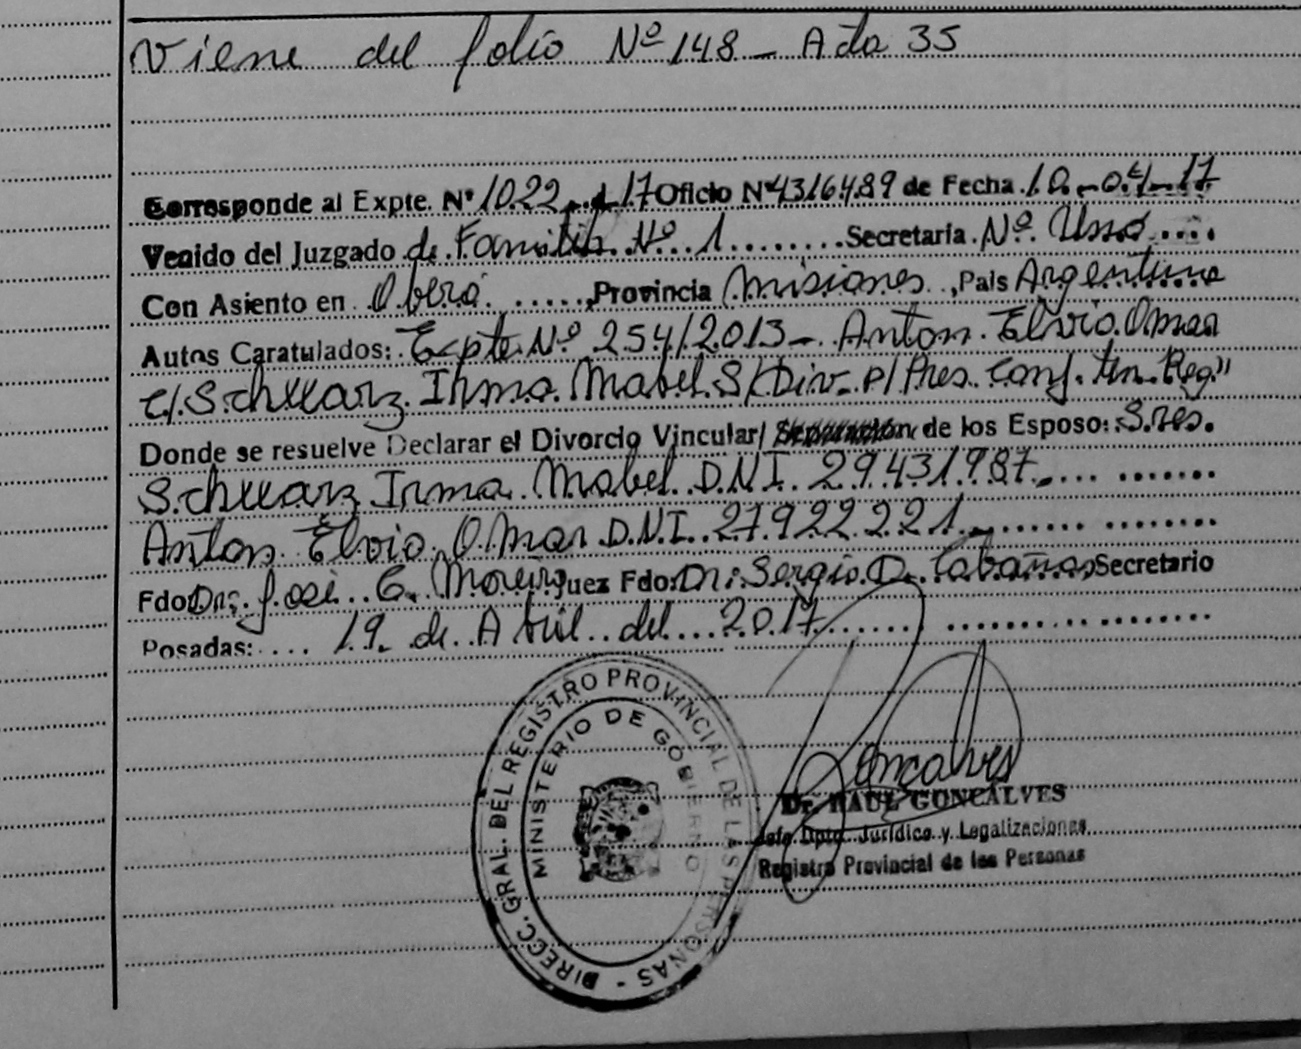 Viene del folio Nº 148 - Acta 35
Corresponde al Expte. Nº 1022 - 17 Oficio Nº 4316489 de Fecha 10-04-17
Venido del Juzgado de Familia Nº 1 Secretaría Nº Uno
Con Asiento en Oberá, Provincia Misiones, País Argentina
Autos Caratulados: Expte Nº 254/2013 - Anton Elvio Omar
c/ Schwarz Irma Mabel S/ Div. p/ Pres. Conj. Reg."
Donde se resuelve Declarar el Divorcio Vincular/ de los Esposo: Sres.
Schwarz Irma Mabel D.N.I. 29.431.987
Anton Elvio Omar D.N.I. 27.922.221
Fdo: Dr. José G. Juez Fdo: Dr. Sergio D. Cabañas Secretario
Posadas: 19 de Abril del 2017
DIRECC. GRAL. DEL REGISTRO PROVINCIAL DE LAS PERSONAS -
MINISTERIO DE GOBIERNO
Goncalves
Dr. RAUL GONCALVES
Jefe Dpto. Jurídico y Legalizaciones
Registro Provincial de las Personas